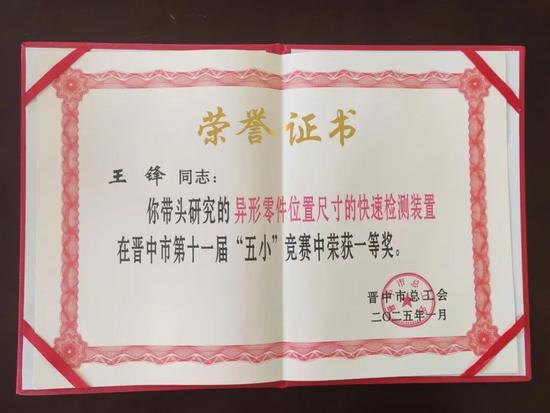 荣誉证书
王锋 同志：
你带头研究的异形零件位置尺寸的快速检测装置
在晋中市第十一届“五小”竞赛中荣获一等奖。
晋中市总工会
二〇二五年一月